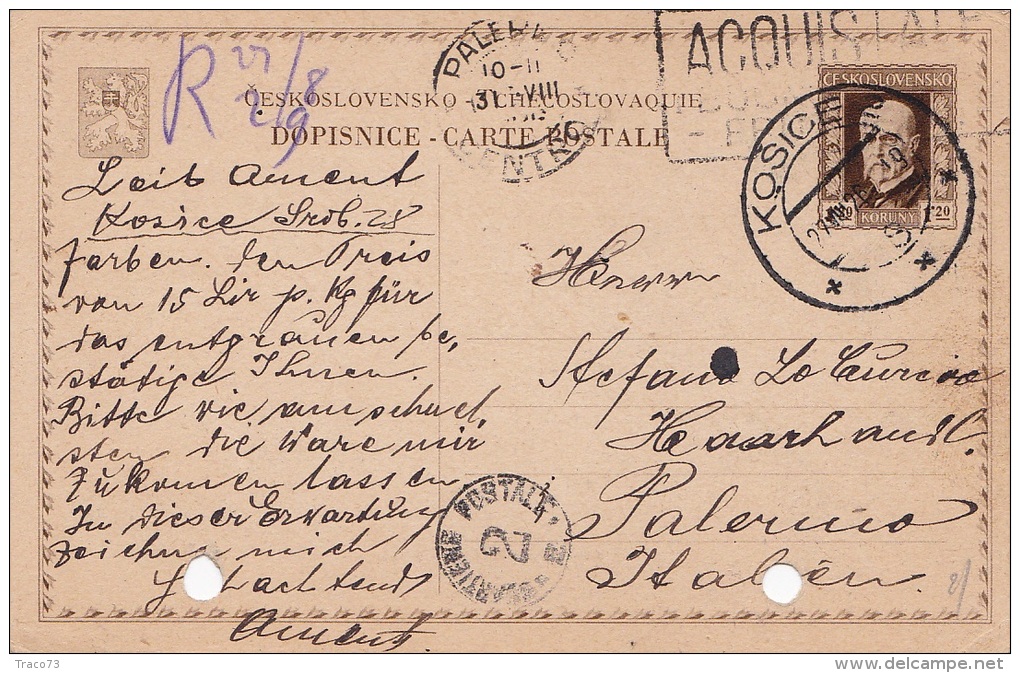 R 27/8
2/9
PALERMO
10-11
31 VIII
CENTRO
ACQUISTATE
ČESKOSLOVENSKO - TCHÉCOSLOVAQUIE
DOPISNICE - CARTE POSTALE
ČESKOSLOVENSKO
KORUNY 1·20
KOŠICE
Leib Ament
Košice Srob. 28
farben. Den Preis
von 15 Lir p. Kg für
das entgrauen be,
stätige Ihnen.
Bitte wie am schnel,
sten die Ware mir
Zukomen lassen
In dieser Erwartung
zeichne mich
Hochachtend
Ament
Herrn
Stefano Lo Curcio
Haarhandl.
Palermo
Italien.
PORTALETTERE
2
2/
Traco73
delcampe.net